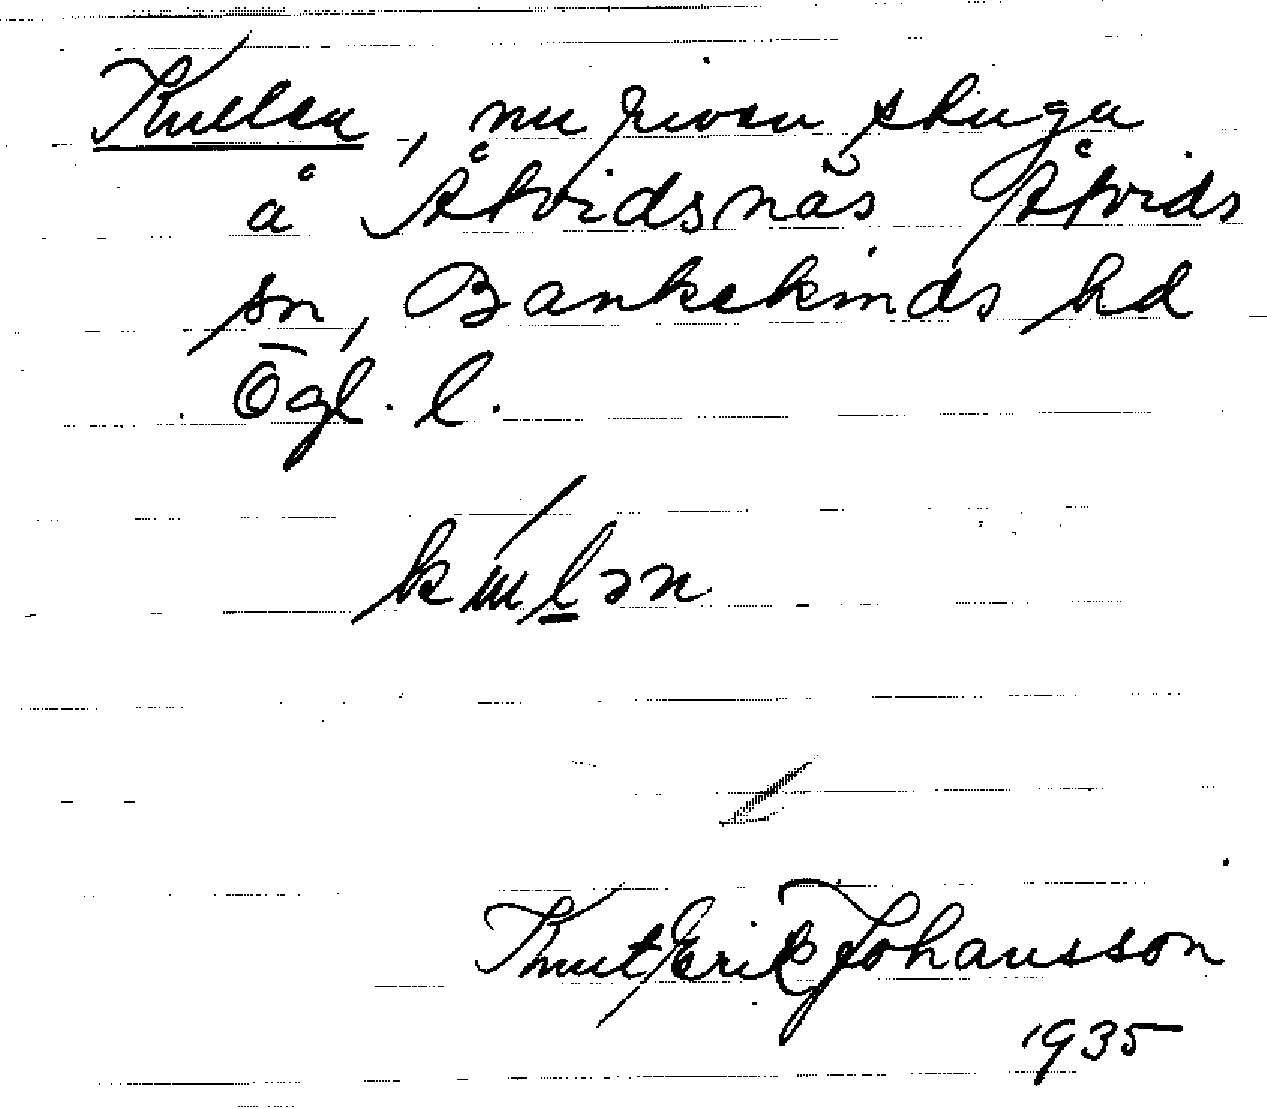 Kullen, nu riven stuga
å Åtvidsnäs Åtvids
sn, Bankekinds hd
Ögl. l.
Knut Erik Johansson
1935